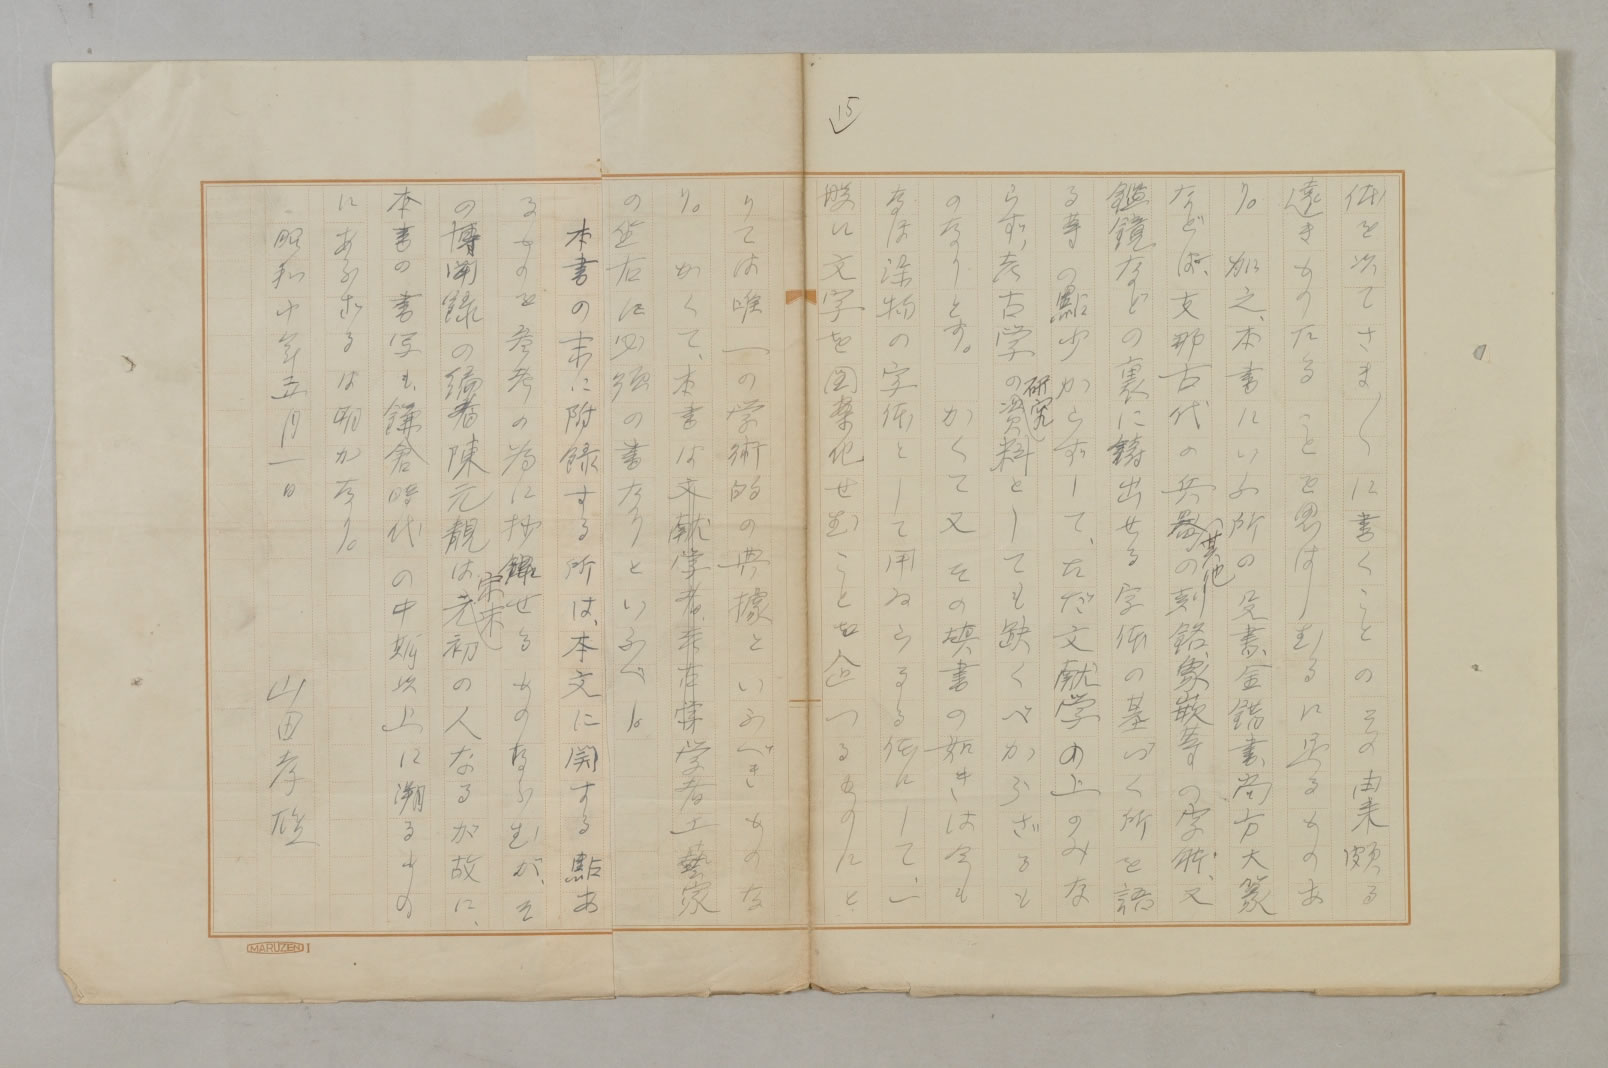 15
体を以てさま〲に書くことのその由来頗る
遠きものたることを思はしむるに足るものあ
り。加之、本書にいふ所の殳書、金錯書、尚方大篆
などは、支那古代の兵器其他の刻銘、象嵌等の字体、又
鑑鏡などの裏に鋳出せる字体の基づく所を語
る等の點少からずして、ただ文献学の上のみな
らず、考古学の研究資料としても缺くべからざるも
のなりとす。かくて又その填書の如きは今も
なほ染物の字体として用ゐらるる体にして、一
般に文字を図案化せむことを企つるものにと
りては唯一の学術的の典據といふべきものな
り。かくて、本書は文献学者、考古学者、工藝家
の坐右に必須の書なりといふべし。
本書の末に附録する所は、本文に関する點あ
るものを参考の為に抄録せるものならむが、そ
の博聞録の編者陳元靚は宋末元初の人なるが故に、
本書の書写も鎌倉時代の中期以上に溯るもの
にあらざるは明かなり。
昭和十年五月一日
山田孝雄
MARUZEN I